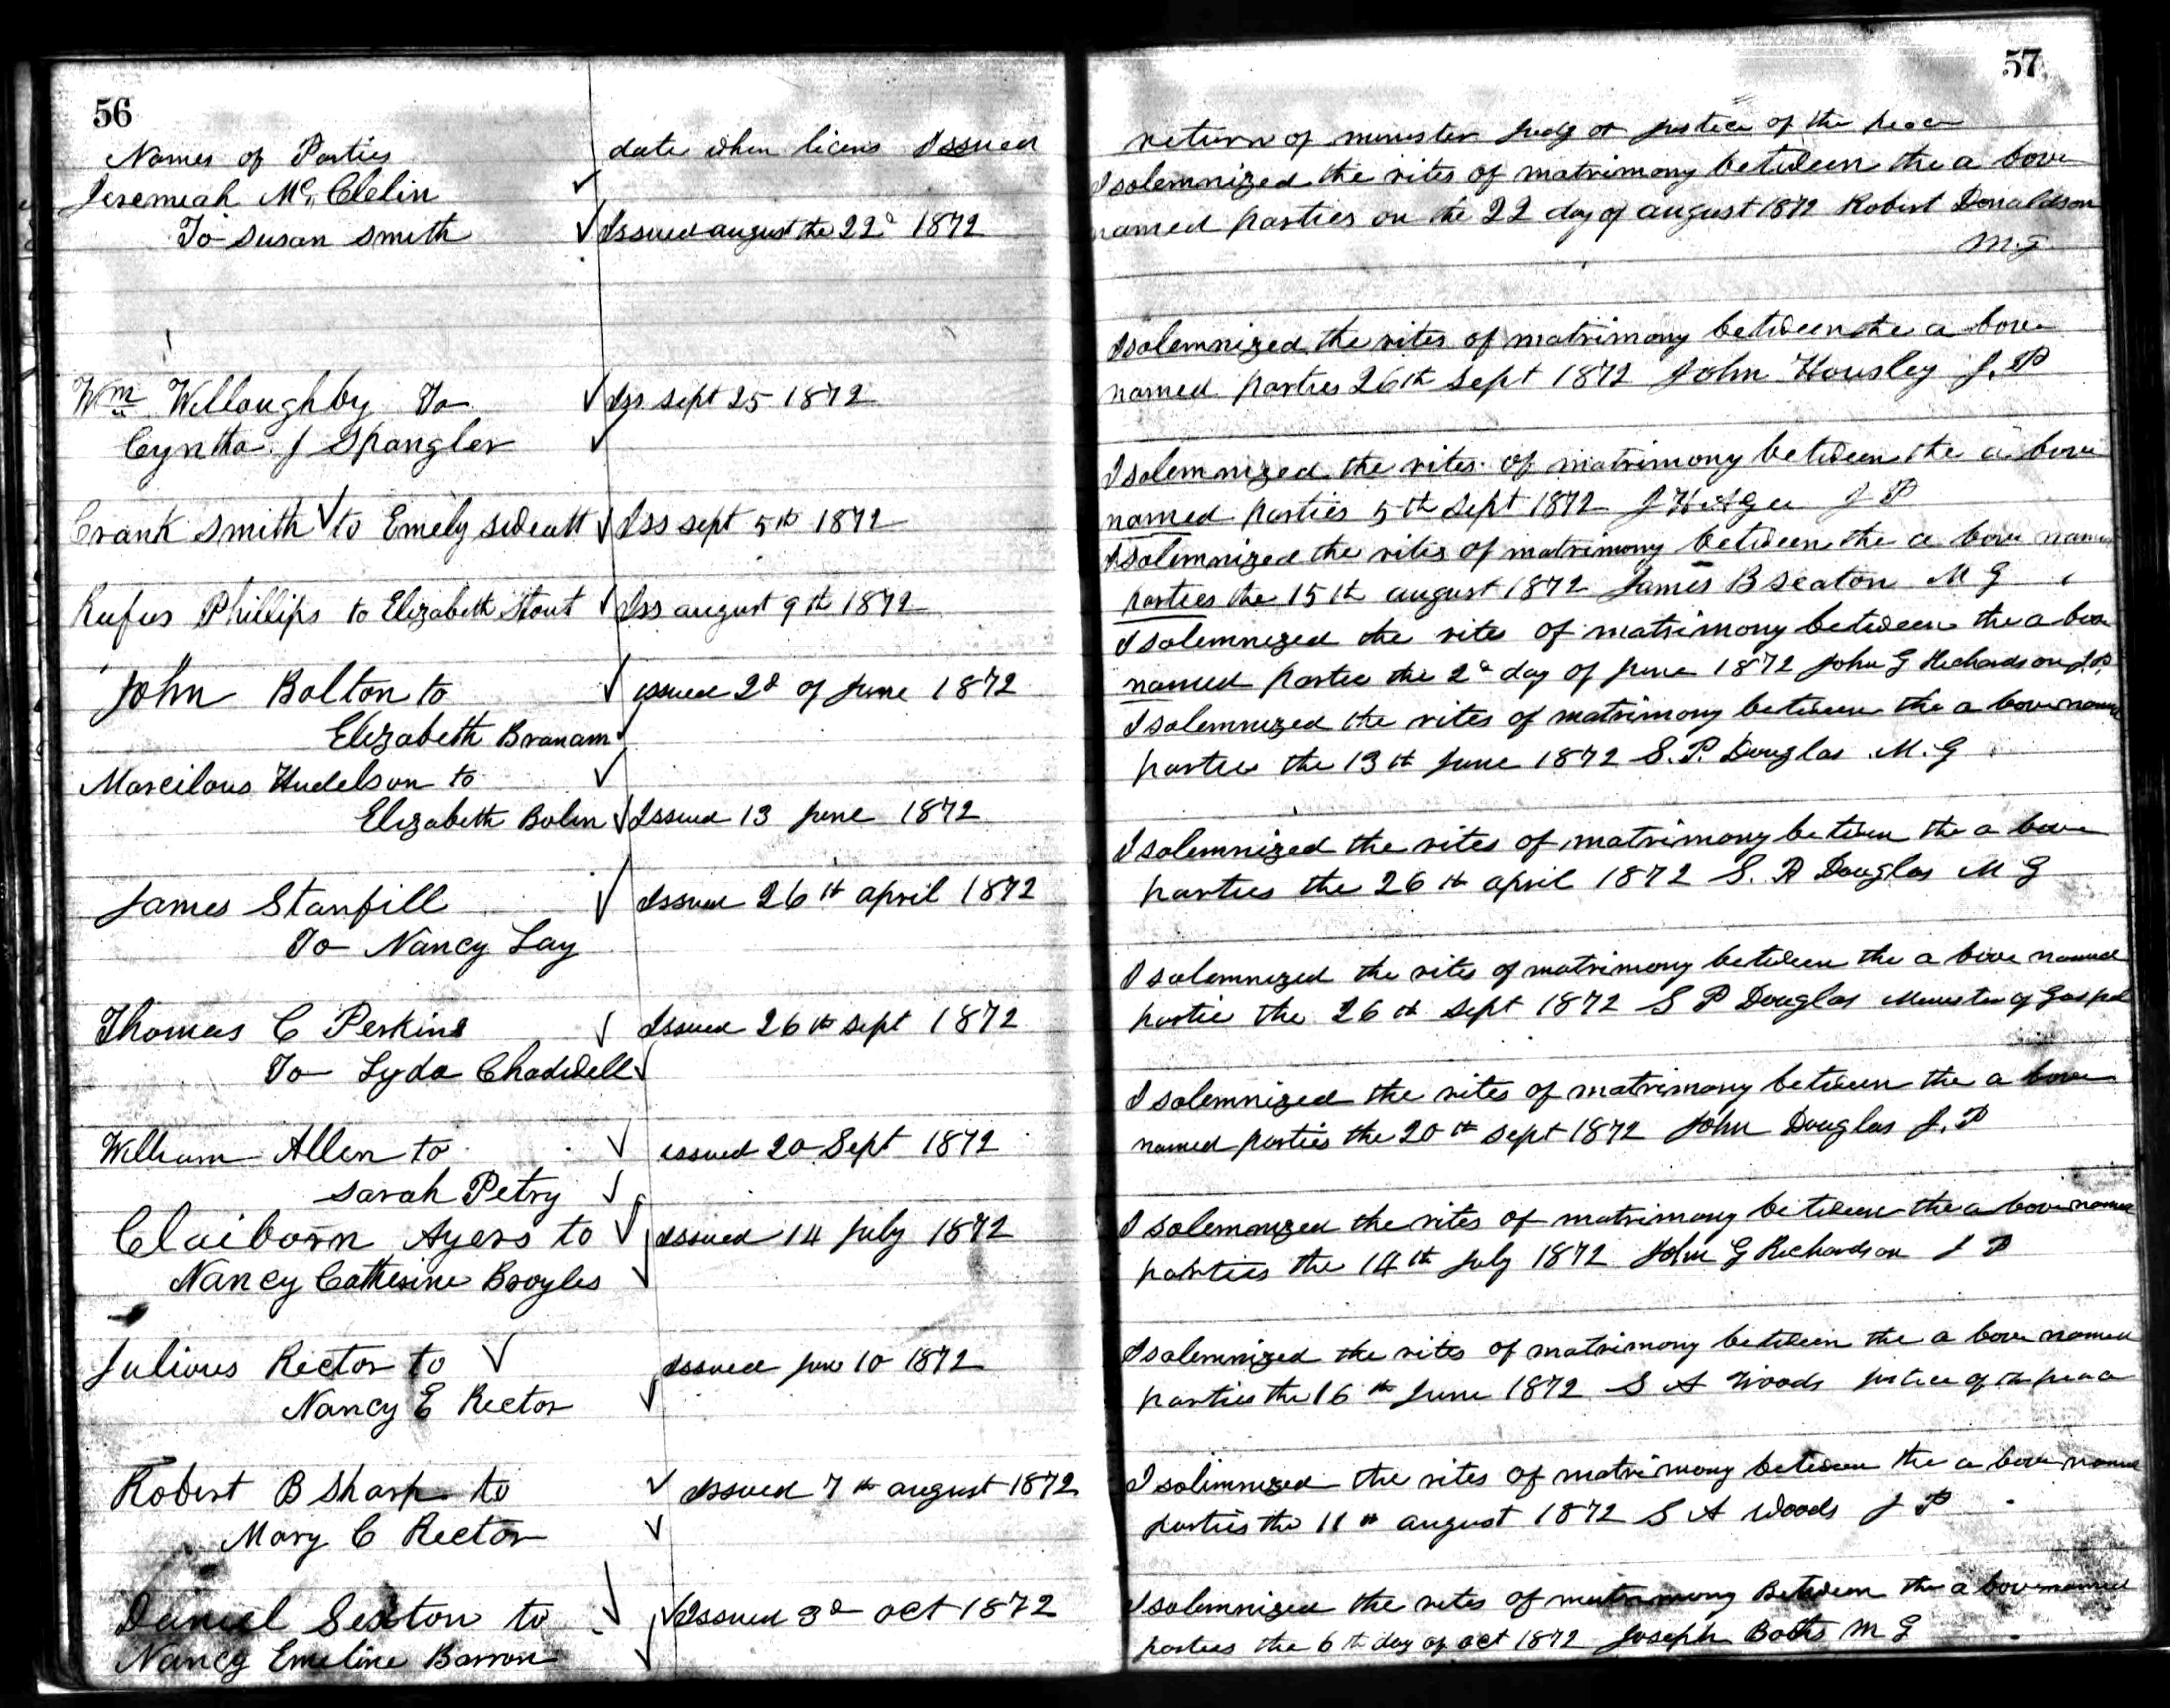 56
Names of Parties
date when licens Issued
Jeremiah Mc, Clelin
To Susan Smith
Issued august the 22d 1872
Wm Willoughby To
Iss sept 25 1872
Cyntha J Spangler
Crank Smith to Emely Sweatt
Iss sept 5th 1872
Rufus Phillips to Elizabeth Stout
Iss august 9th 1872
John Bolton to
issued 2d of June 1872
Elizabeth Branam
Marcilous Hudelson to
Elizabeth Bolin
Issued 13 June 1872
James Stanfill
Issued 26th april 1872
To Nancy Lay
Thomas C Perkins
Issued 26th sept 1872
To Lyda Chadwell
William Allen to
issued 20 Sept 1872
Sarah Petry
Claiborn Ayers to
Issued 14 July 1872
Nancy Catherine Broyles
Julious Rector to
Issued 10 1872
Nancy E Rector
Robert B Sharp to
Issued 7th august 1872
Mary C Rector
Daniel Sexton to
Issued 3d oct 1872
Nancy Emeline Barron
57
return of minister Judg or Justice of the peace
I solemnized the rites of matrimony between the a bove
named parties on the 22 day of august 1872 Robert Donaldson
M.G
I solemnized the rites of matrimony between the a bove
named parties 26th Sept 1872 John Housley J. P
I solemnized the rites of matrimony between the a bove
named parties 5th Sept 1872 J P
I solemnized the rites of matrimony between the a bove named
parties the 15th august 1872 James B Seaton M G
I solemnized the rites of matrimony between the a bove
named partie the 2d day of June 1872 John G Richardson J.P.
I solemnized the rites of matrimony between the a bove named
partie the 13th June 1872 S. P. Douglas M. G
I solemnized the rites of matrimony between the a bove
parties the 26th april 1872 S. P Douglas M G
I solemnized the rites of matrimony between the a bove named
partie the 26th Sept 1872 S P Douglas Minister of Gospel
I solemnized the rites of matrimony between the a bove
named parties the 20th Sept 1872 John Douglas J. P
I solemnized the rites of matrimony between the a bove named
parties the 14th July 1872 John G Richardson J P
I solemnized the rites of matrimony between the a bove named
parties the 16th June 1872 S A Woods justice of the peace
I solimnized the rites of matrimony between the a bove named
parties the 11th august 1872 S A Woods J P
I solemnized the rites of matrimony Between the a bove named
parties the 6th day of oct 1872 Joseph Botts M G